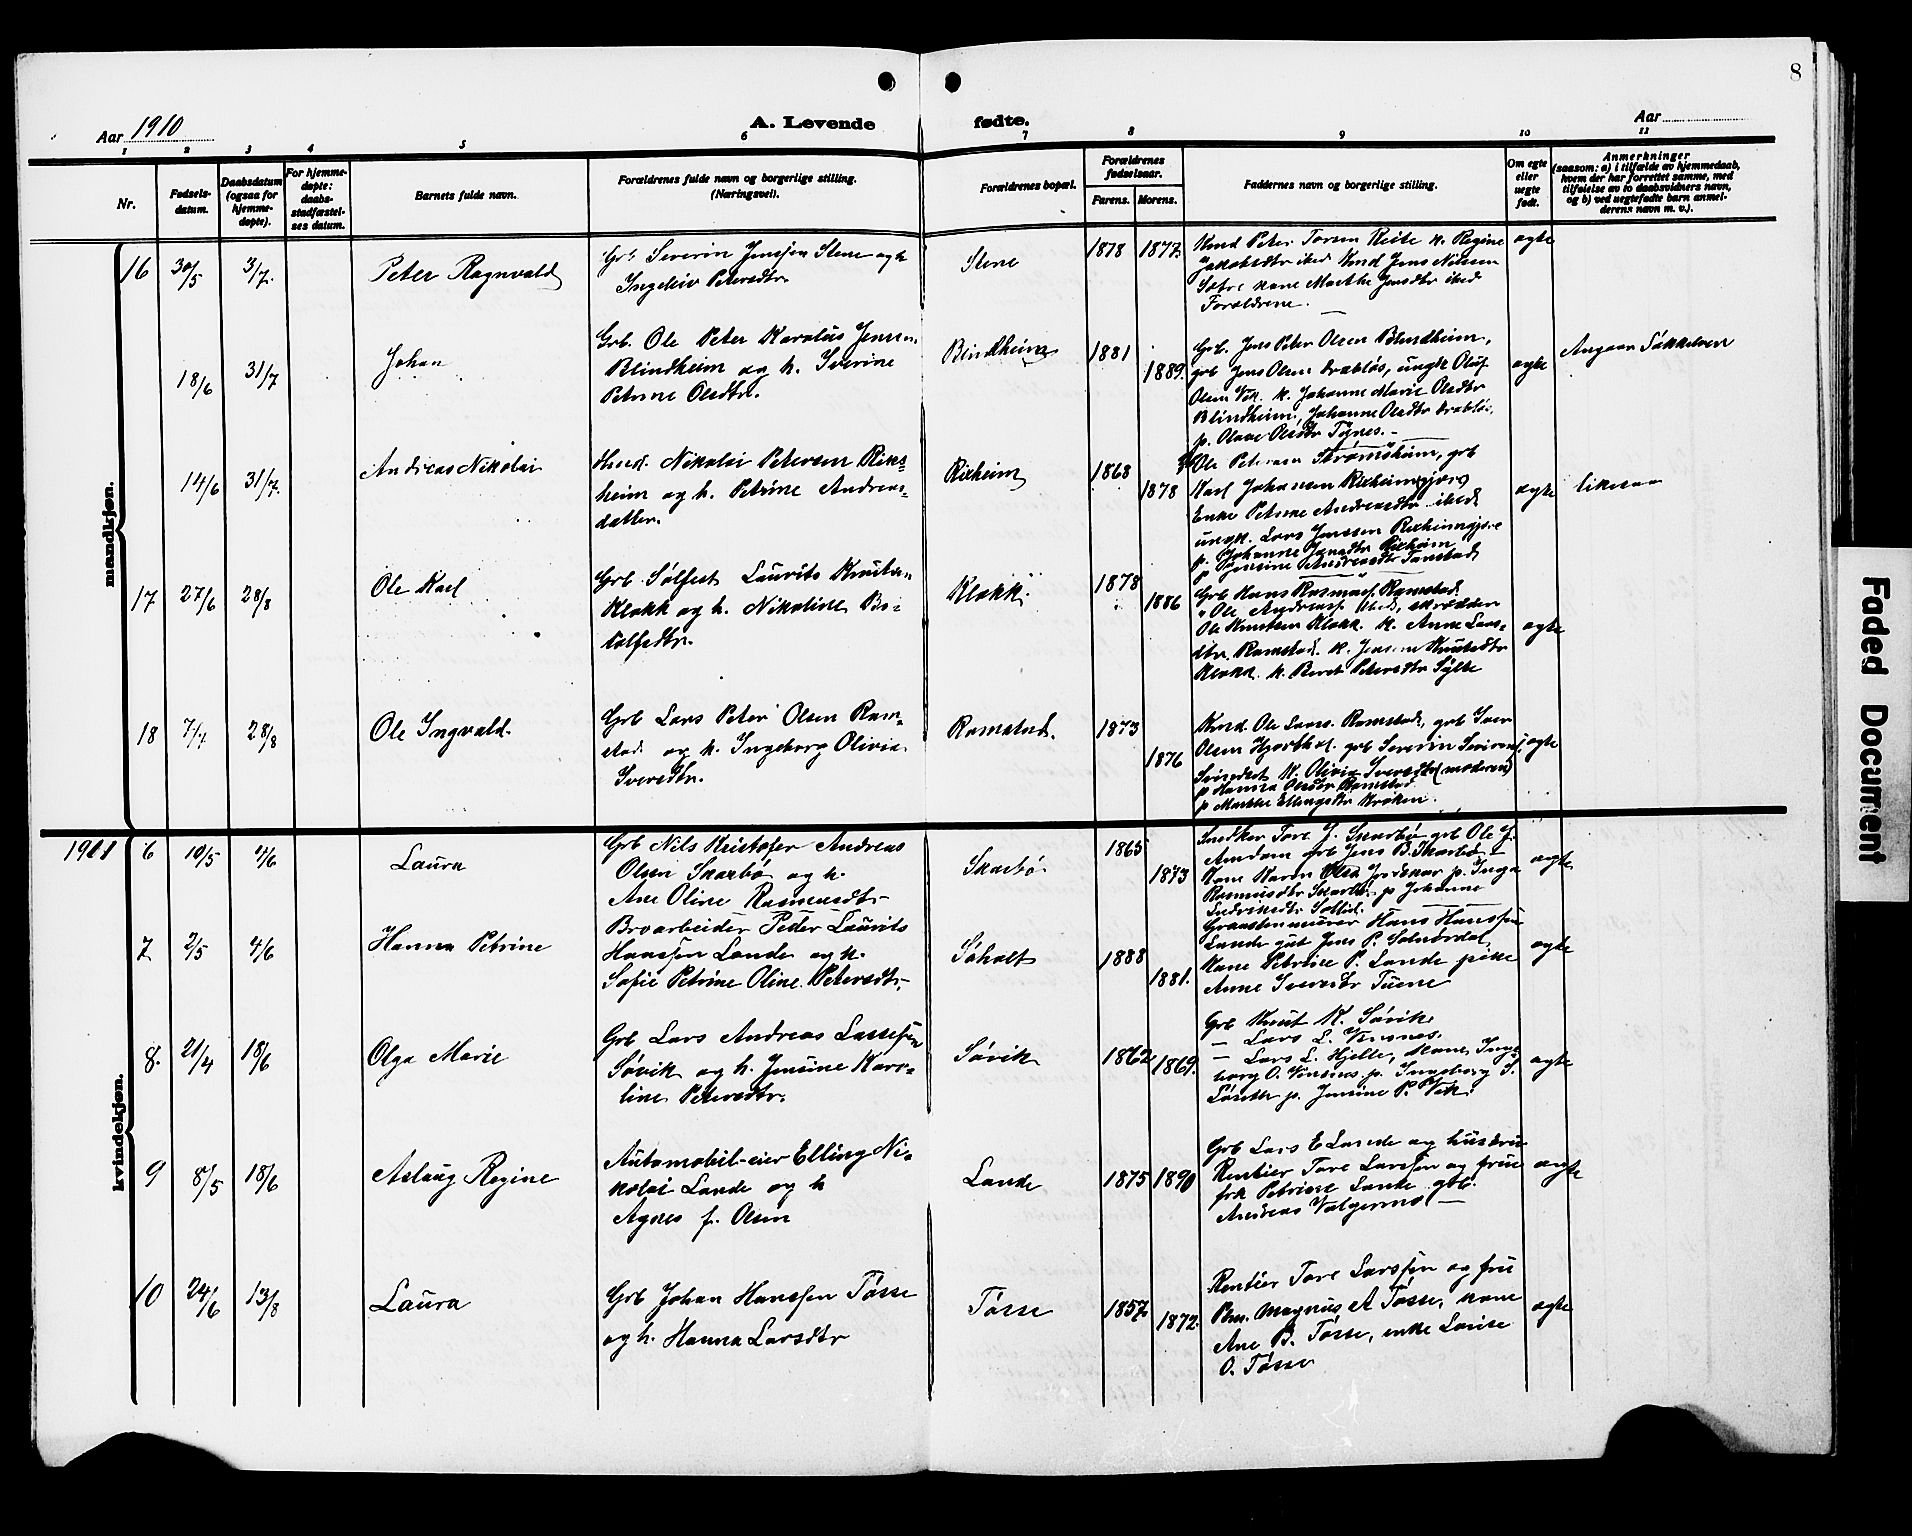 8
Aar 1910
A. Levende fødte.
Aar
1 2 3 4 5 6 7 8 9 10 11
Nr.
Fødsels-
datum.
Daabsdatum
(ogsaa for
hjemme-
døpte).
For hjemme-
døpte:
daabs-
stadfæstel-
ses datum.
Barnets fulde navn.
Forældrenes fulde navn og borgerlige stilling.
(Næringsvei).
Forældrenes bopæl.
Forældrenes
fødselsaar.
Farens. Morens.
Faddernes navn og borgerlige stilling.
Om egte
eller
uegte
født.
Anmerkninger
(saasom: a) i tilfælde av hjemmedaab,
hvem der har forrettet samme, med
tilføielse av to daabsvidners navn,
og b) ved uegtefødte barn anmel-
derens navn m. v.).
mandkjøn.
16 30/5 3/7. Peter Ragnvald
Grb Severin Jenssen Stene og h
Ingeleiv Petersdtr.
Stene 1878 1877.
Kmd Peter Torsen Reite k. Regine
Jakobsdtr ibid Kmd Jens Nilssen
Sætre kone Marthe Jensdtr ibid
Forældrene.
ægte
18/6 31/7 Johan
Grb. Ole Peter Karolus Jensen
Blindheim og h. Iverine
Petrine Olsdtr.
Blindheim 1881 1889.
Grb. Jens Peter Olsen Blindheim,
grb Jens Olsen Drabløs, ungk Oluf
Olsen Vik. k. Johanne Marie Olsdtr
Blindheim, Johanne Olsdtr Drabløs,
p. Olave Olsdtr Tynes.
ægte
Angaar Søkkelven
14/6 31/7. Andreas Nikolai
Hmd. Nikolai Petersen Rix-
heim og h. Petrine Andreas-
datter.
Rixheim 1868 1878
Ole Petersen Strømsheim, grb
Karl Johansen Rixheimgjære
Enke Petrine Andreasdtr ibid
ungk. Lars Jenssen Rixheimgjære
p. Johanne Jensdtr Rixheim
p Jensine Andreasdtr Tanstad
ægte
likesaa
17 27/6 28/8 Ole Karl
Grb Sølfest Laurits Knutsen
Klokk og h. Nikoline Bo-
tolfsdtr.
Klokk. 1878 1886
Grb Hans Rasmus Ramstad
" Ole Andreas ibid, skrædder
Ole Knutsen Klokk. k. Anne Lars-
dtr. Ramstad. k. Jensine Knutsdtr
Klokk. k. Beret Petersdtr Sylte
ægte
18 7/7 28/8 Ole Ingvald.
Grb Lars Peter Olsen Ram-
stad og h. Ingeborg Olivia
Iversdtr.
Ramstad. 1873 1876
Kmd. Ole Larss. Ramstad, grb Iver
Olsen Hjorthol. grb Severin Severins.
k. Olivia Iversdtr (moderen)
p Hanna Olsdtr Ramstad
p Marthe Ellingsdtr Kroken.
ægte
1911
kvindekjøn.
6 10/5 4/6 Laura
Grb Nils Kristofer Andreas
Olsen Skarbø og h.
Ane Oline Rasmusdtr
Skarbø 1865 1873
Snedker Tore J. Skarbø grb Ole J.
Amdam grb Jens B. Skarbø
Kone Karen p. Inga
Rasmusdtr Skarbø p Johanne
Sollid.
ægte
7 2/5 4/6 Hanna Petrine
Broarbeider Peder Laurits
Hanssen Lande og h.
Sofie Petrine Oline Petersdtr.
Søholt 1888 1881.
Graastensmurer Hans Hanssen
Lande gut Jens P. Solnørdal,
Kone Petrine P. Lande pike
Anne Iversdtr Tuene
ægte
8. 21/4 18/6 Olga Marie
Grb Lars Andreas Lassesen
Søvik og h. Jensine Karo-
line Petersdtr.
Søvik 1862 1869.
Grb Knut K. Søvik
— Lars L. Vinsnes.
— Lars L. Hjelle, kone Inge
borg O. Vinsnes. p. Ingeborg S.
p. Jensine P. Vik.
ægte
9 8/5 18/6 Aslaug Regine
Automobil-eier Elling Ni-
kolai Lande og h
Agnes f. Olsen
Lande 1875 1890
Grb Lars E Lande og hustru
Rentier Tore Larssen og frue
frk Petrine Lande grb.
Andreas Valgermo
ægte
10 24/6 13/8 Laura
Grb Johan Hanssen Tøsse
og h. Hanna Larsdtr
Tøsse 1857. 1872.
Rentier Tore Larssen og fru
Magnus A Tøsse, kone
Ane B. Tøsse, enke Lovise
O. Tøsse
ægte
Faded Document